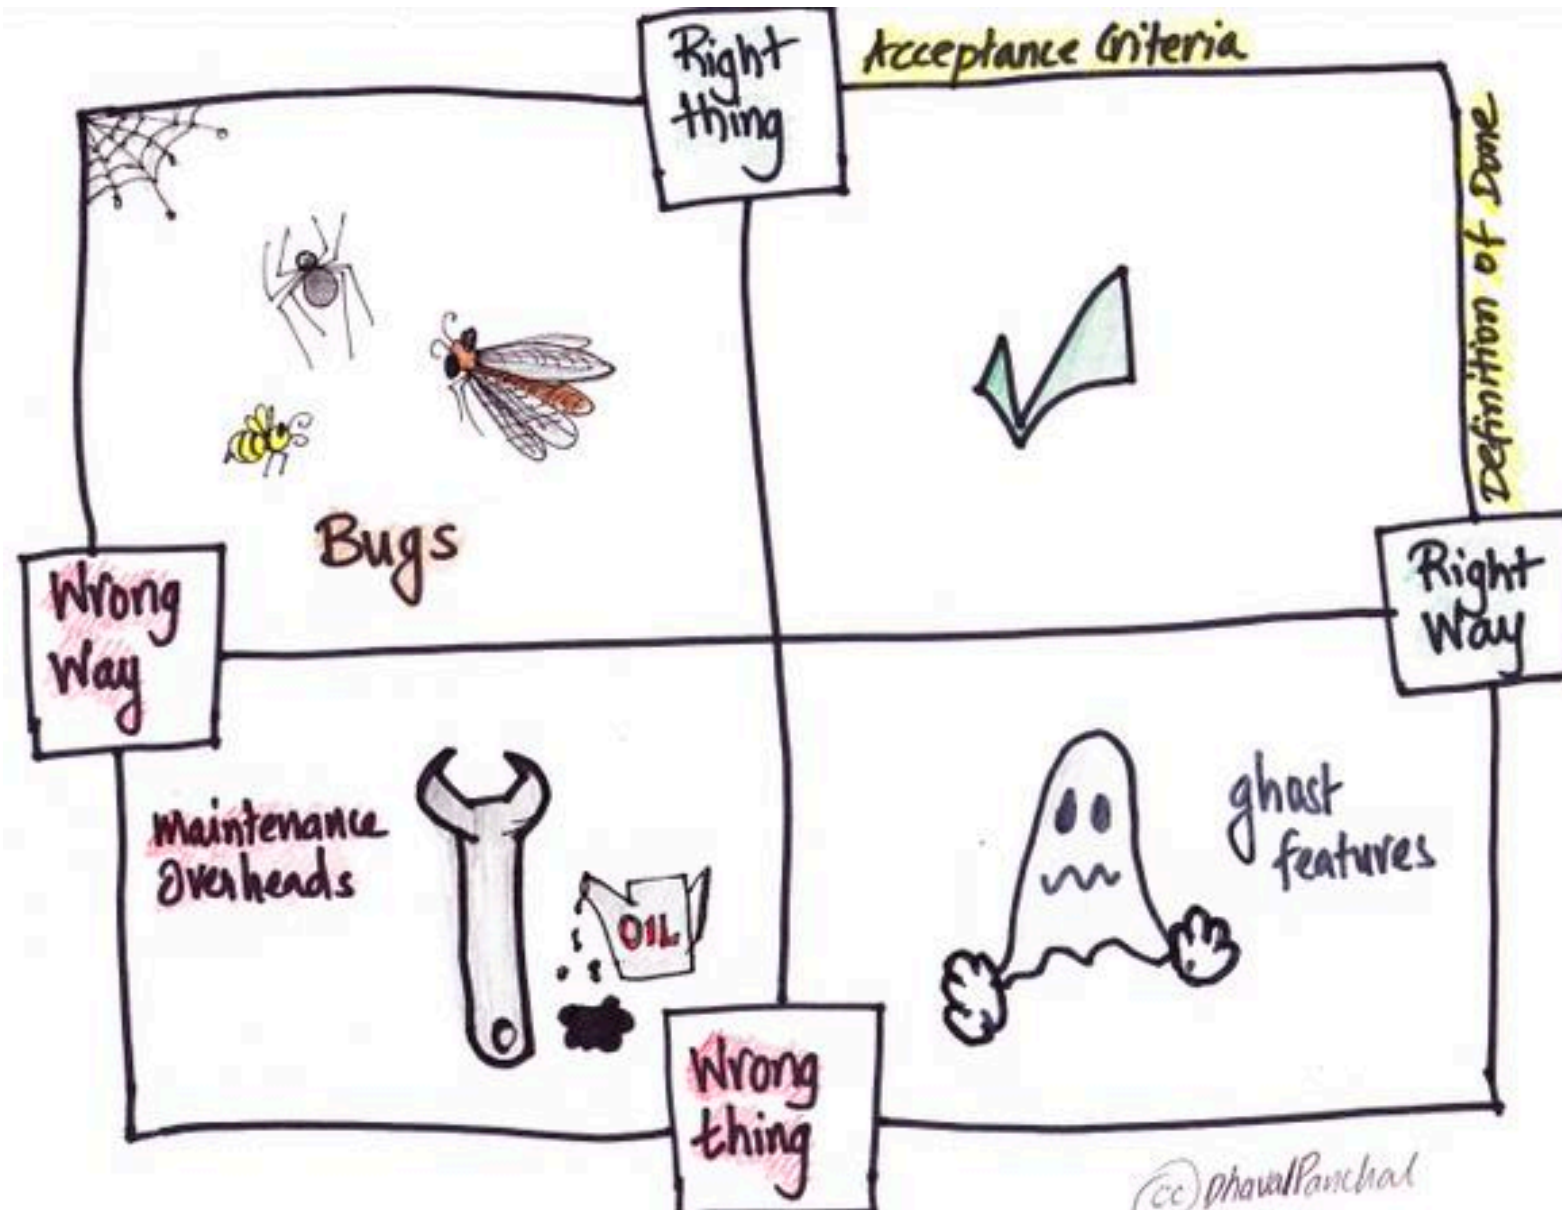 Right
thing
Acceptance Criteria
Definition of Done
Bugs
Wrong
Way
Right
Way
Maintenance
Overheads
OIL
ghost
features
Wrong
thing
(cc) DhavalPanchal